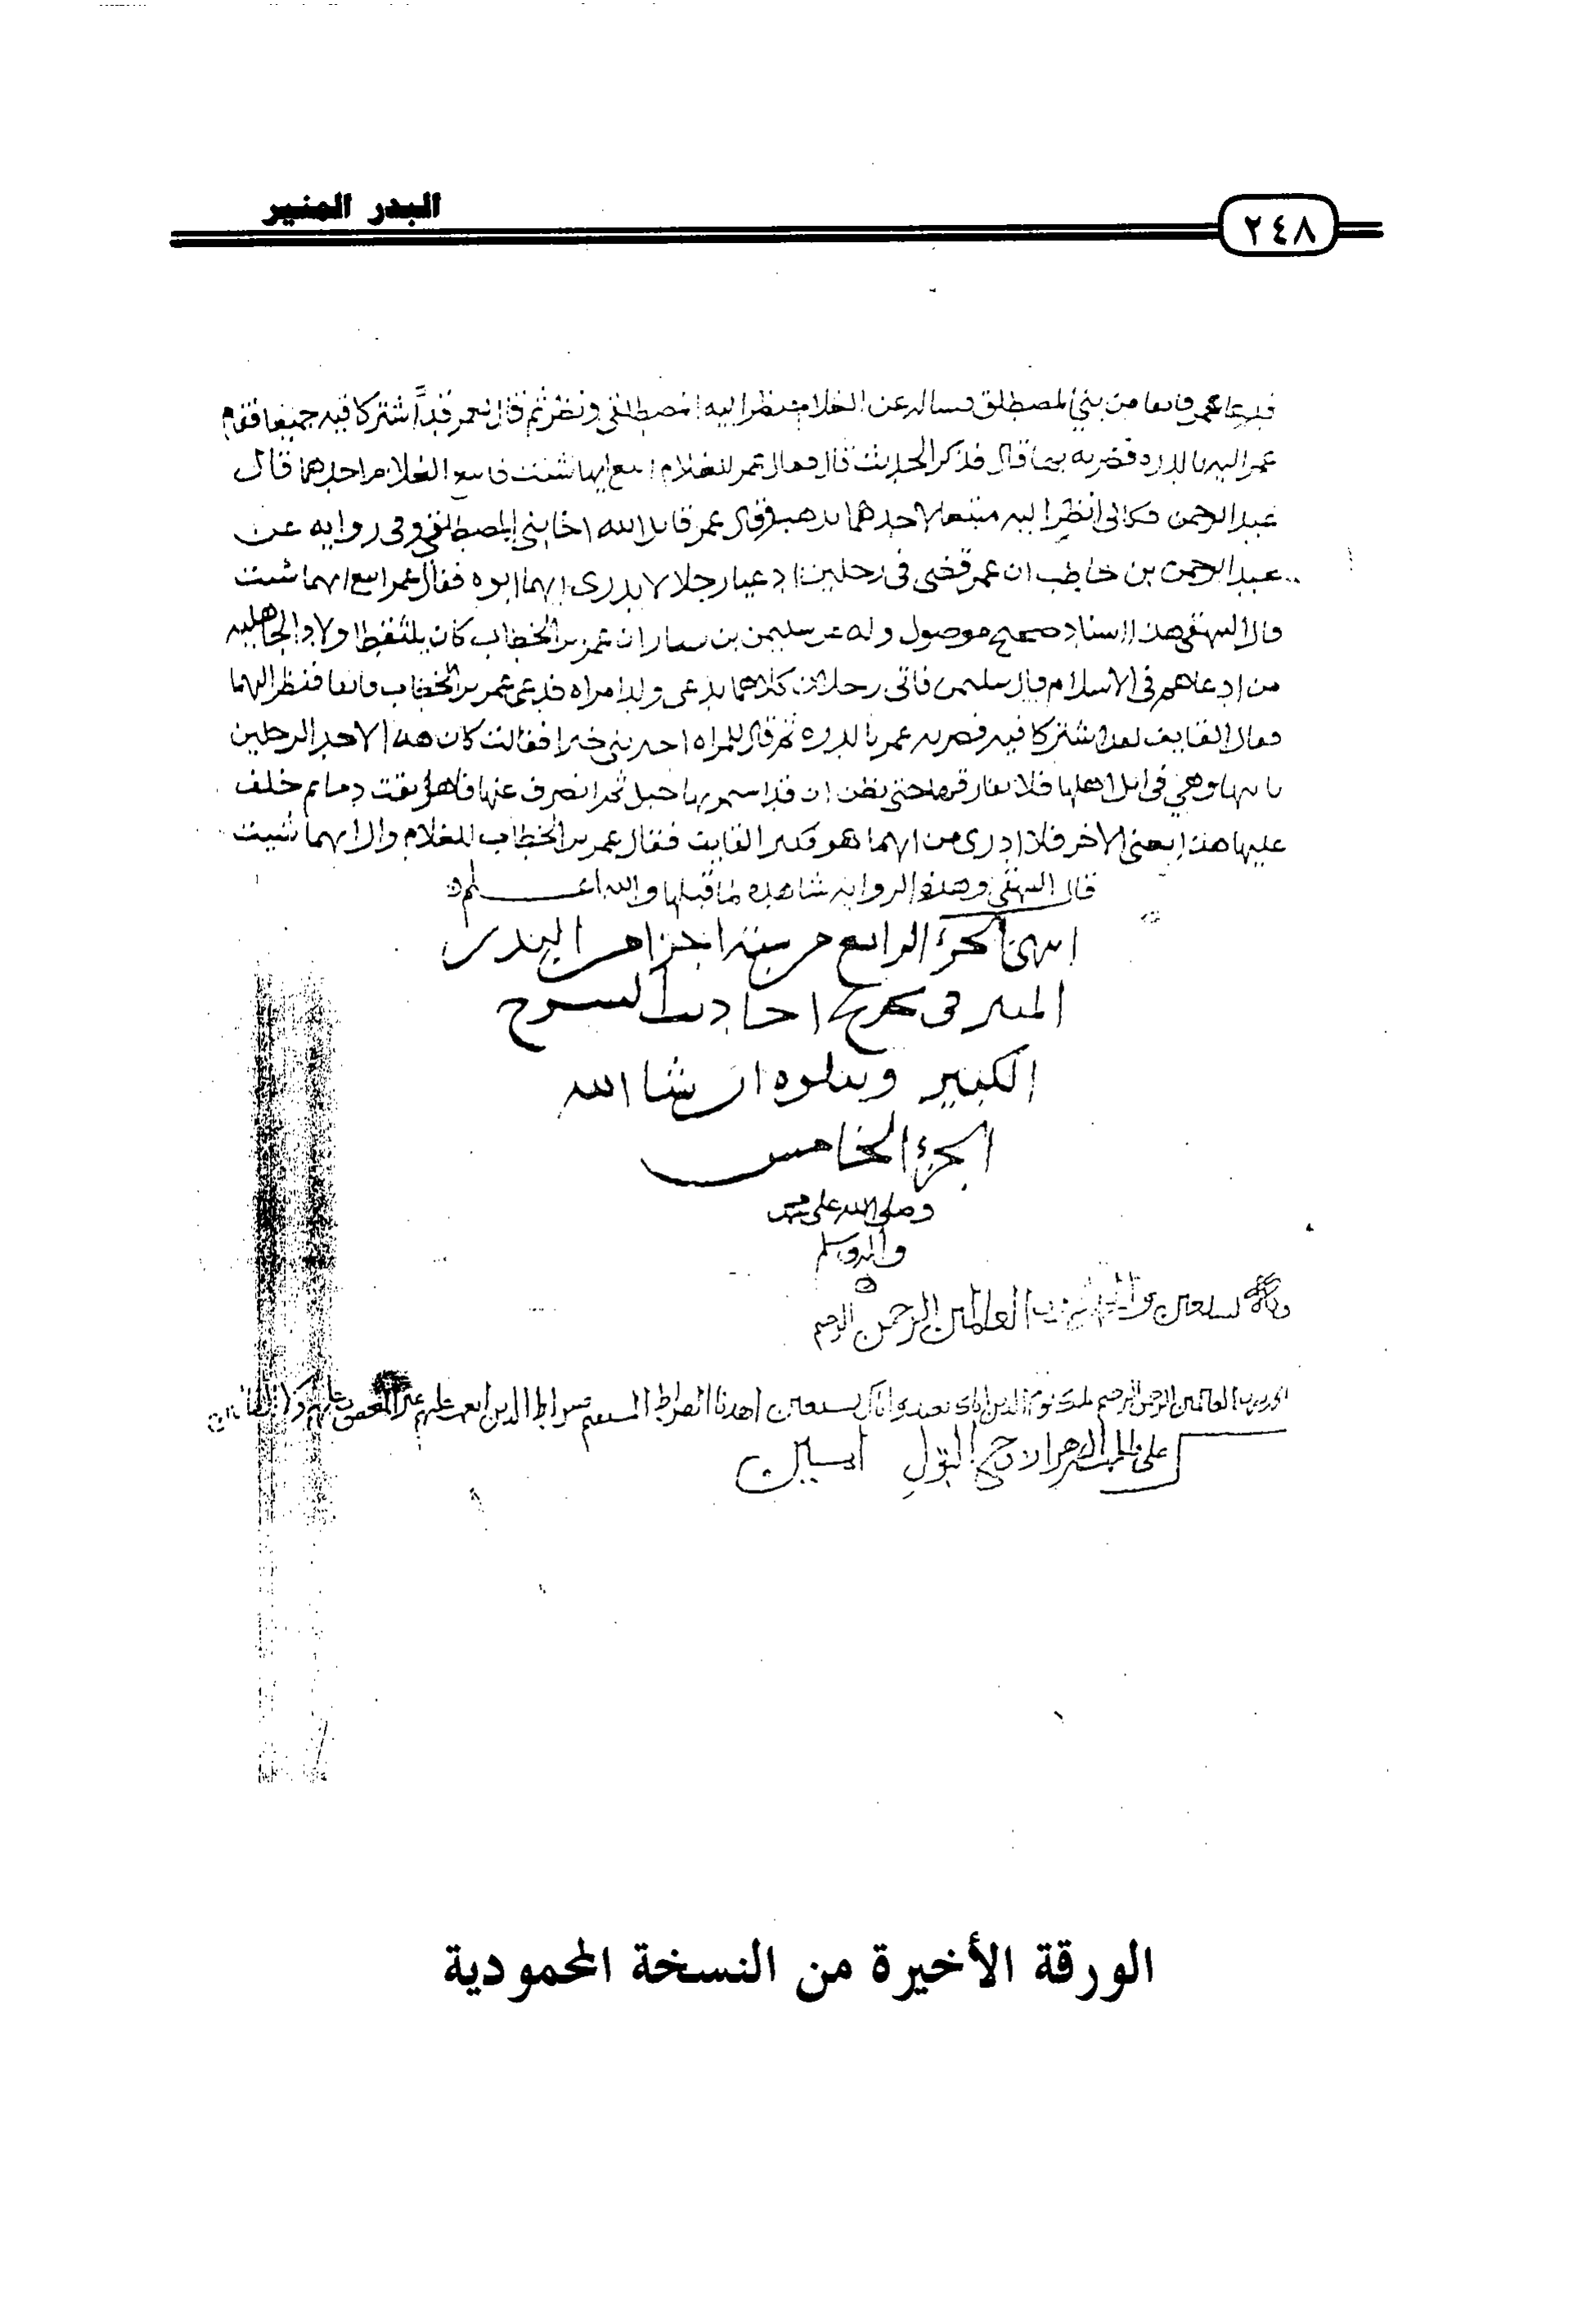 البدر المنير
٢٤٨
فدعا عمر قايفا من بني المصطلق فساله عن الغلام فنظر اليه المصطلقي ونظر ثم قال لعمر قد اشتركا فيه جميعا فقام
عمر اليه بالدره فضربه بها قال فذكر الحديث قال فقال عمر للغلام اتبع ايهما شئت فاتبع الغلام احدهما قال
عبد الرحمن فكاني انظر اليه متبعا لاحدهما يذهب وقال عمر قاتل الله اخا بني المصطلق وفي روايه عن
عبد الرحمن بن حاطب ان عمر قضى في رجلين ادعيا رجلا لا يدرى ايهما ابوه فقال عمر اتبع ايهما شئت
قال البيهقي هذا اسناد صحيح موصول وله عن سليمن بن يسار ان عمر بن الخطاب كان يلتقط اولاد الجاهليه
من ادعاهم في الاسلام قال سليمن فاتى رجلان كلاهما يدعى ولد امراه فدعى عمر بن الخطاب قايفا فنظر اليهما
فقال القايف لقد اشتركا فيه فضربه عمر بالدره ثم قال للمراه اخبريني خبرك فقالت كان هذا لاحد الرجلين
ياتيها وهي في ابل اهلها فلا يفارقها حتى تظن ان قد استمر بها حبل ثم انصرف عنها فاهريقت دما ثم خلف
عليها هذا يعني الاخر فلا ادرى من ايهما هو فكبر القايف فقال عمر بن الخطاب للغلام وال ايهما شيت
قال البيهقي وهذه الروايه شاهده لما قبلها والله اعلم
انتهى الجزء الرابع من ستة اجزا من البدر
المنير في تخريج احاديث الشرح
الكبير ويتلوه ان شا الله
الجزء الخامس
وصلى الله على محمد
واله وسلم
نستعين العالمين الرحمن الرحيم
العالمين الرحمن الرحيم ملك يوم الدين اياك نعبد واياك نستعين اهدنا الصراط المستقيم صراط الذين انعمت عليهم غير المغضوب عليهم ولا الضالين
على البتول امين
الورقة الأخيرة من النسخة المحمودية